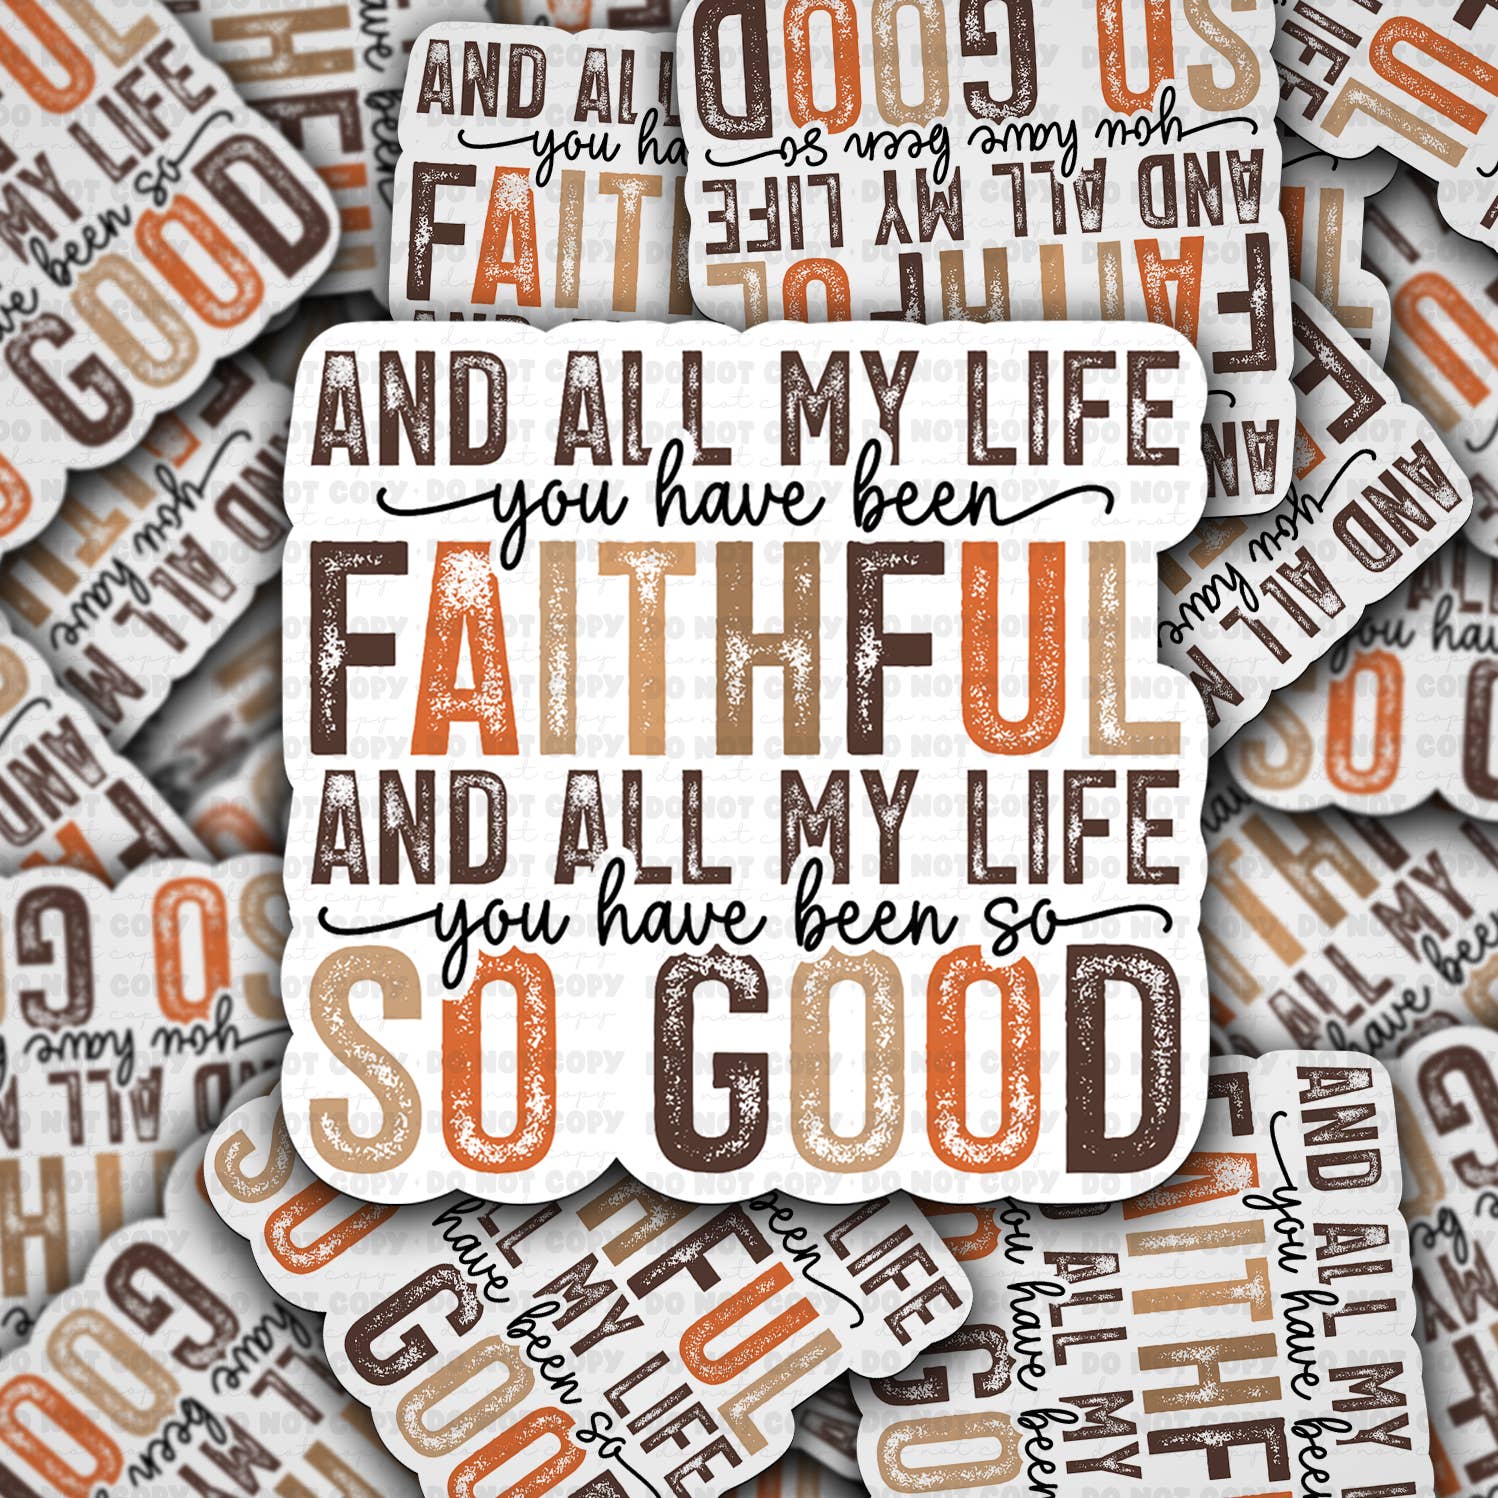 AND ALL MY LIFE
you have been
FAITHFUL
AND ALL MY LIFE
you have been so
SO GOOD